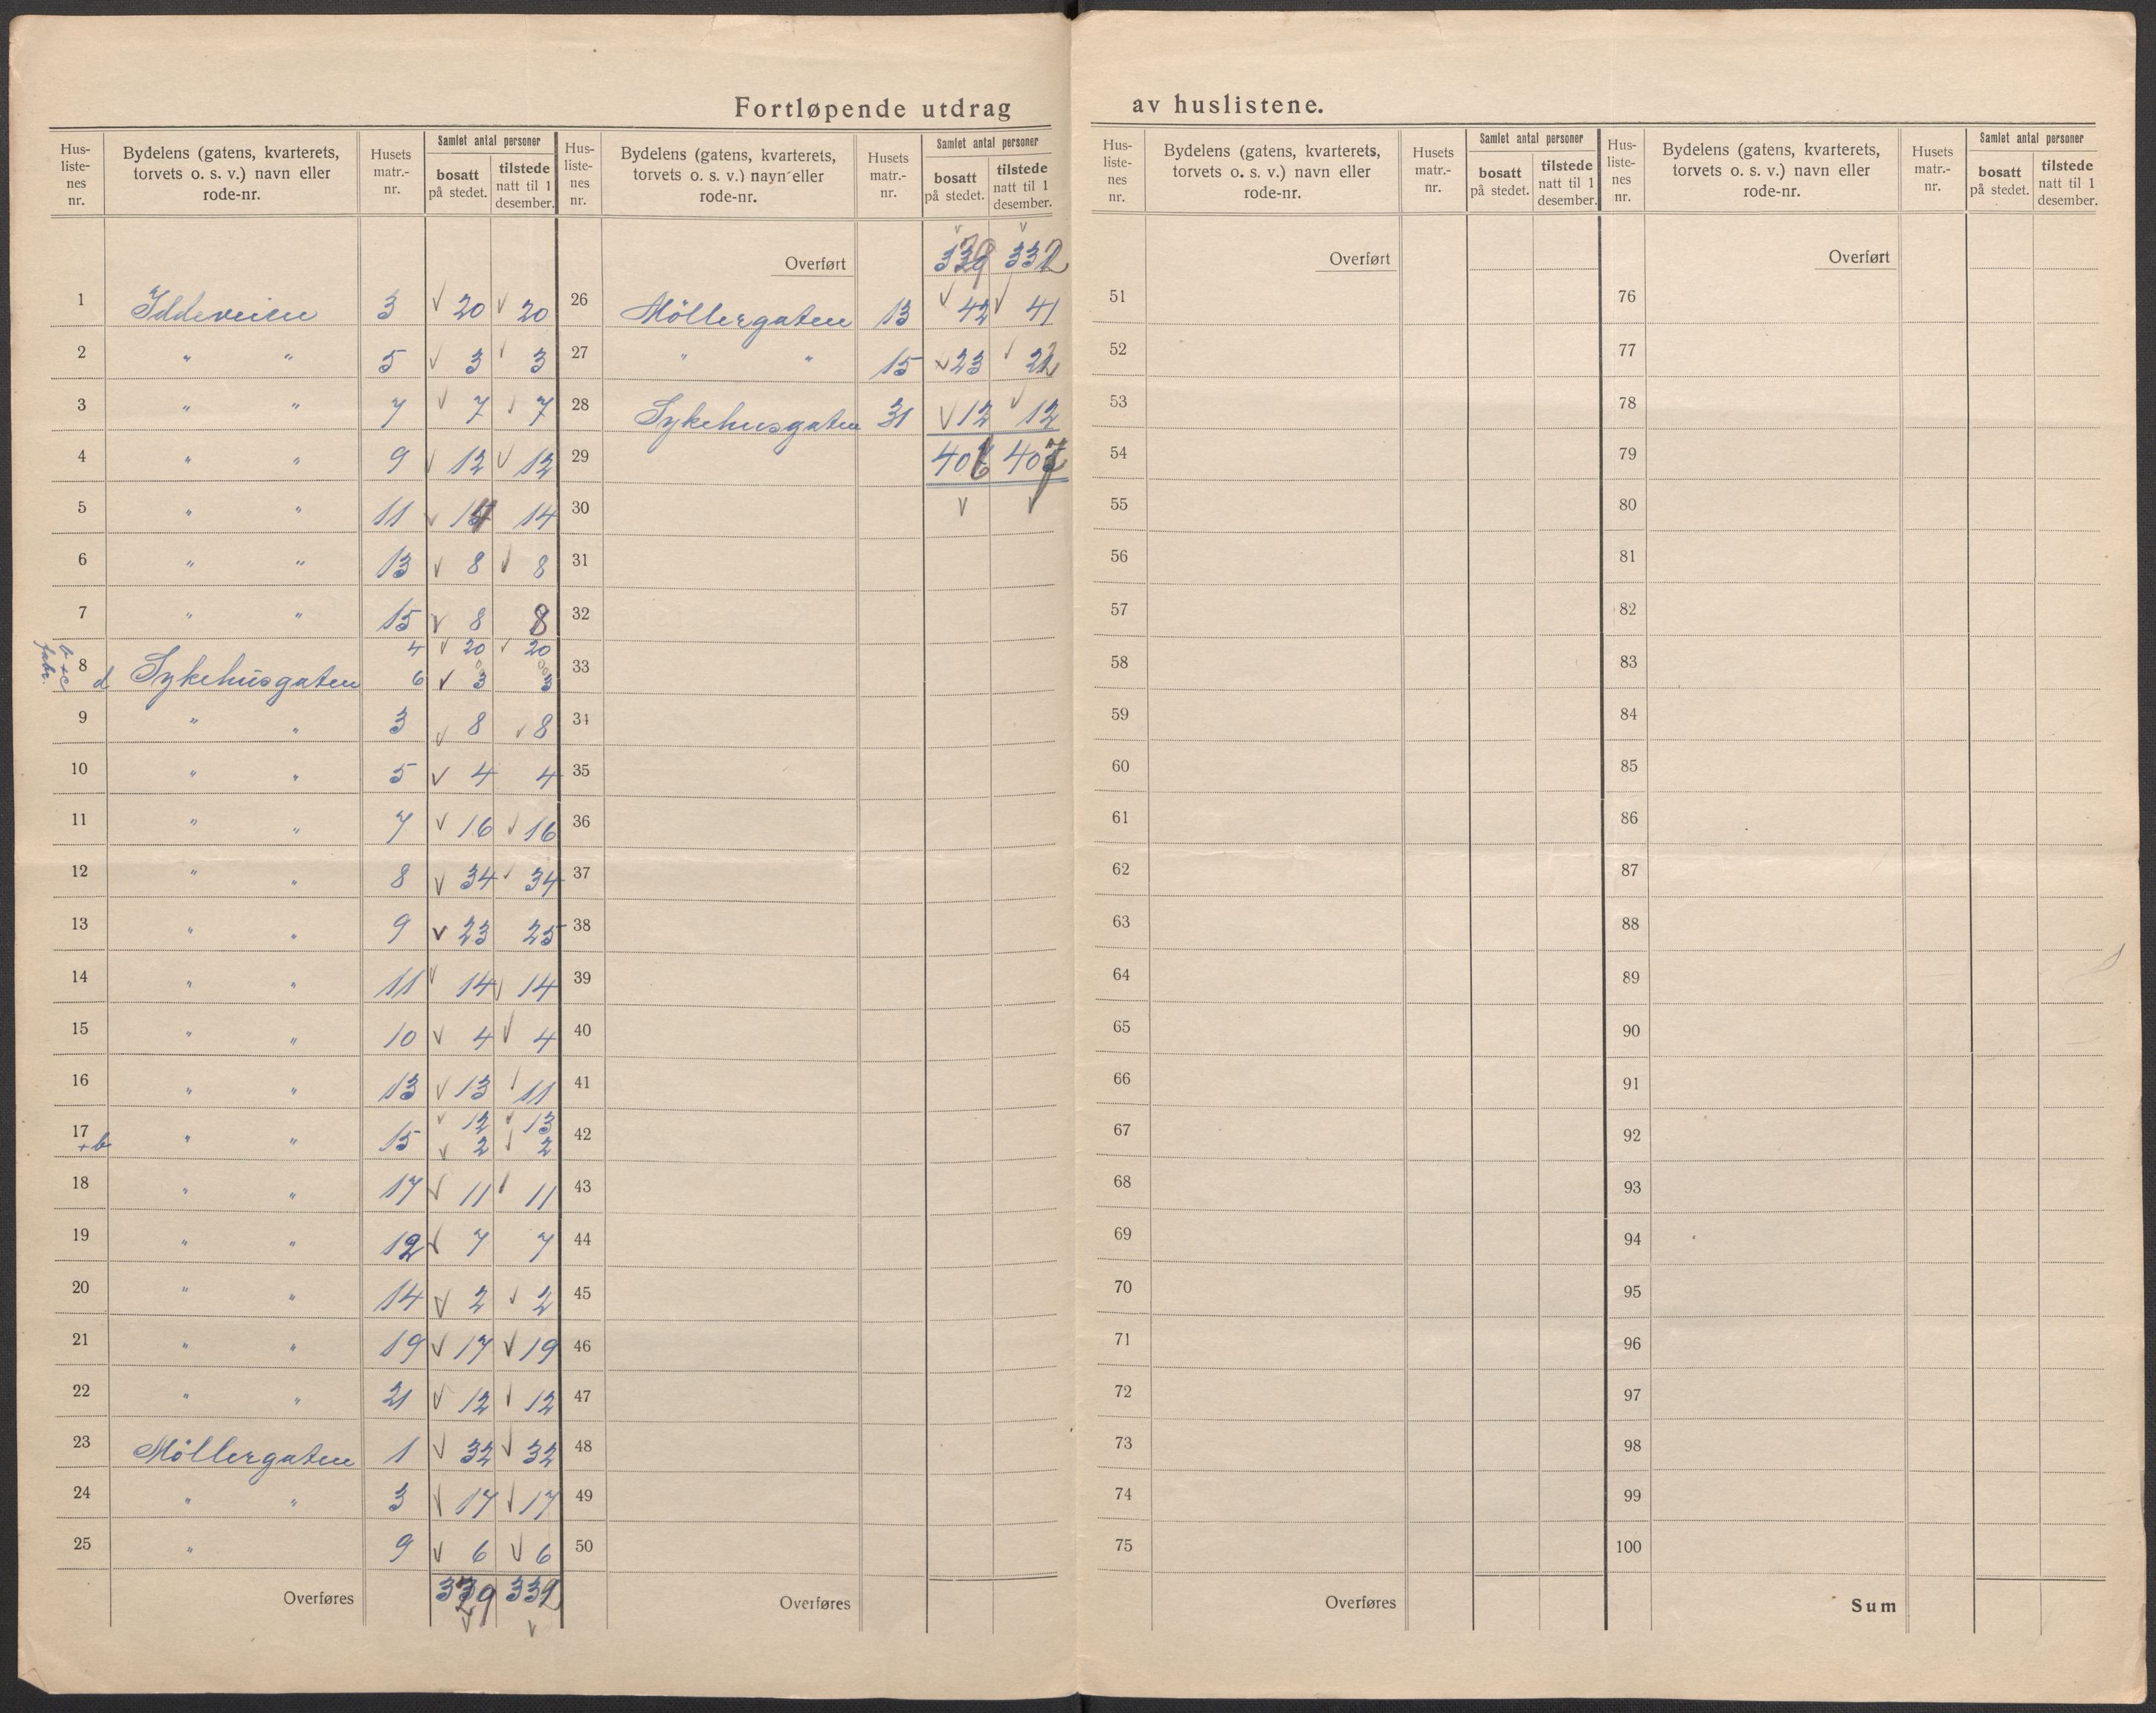 Fortløpende utdrag av huslistene.
Hus-liste-nes nr. | Bydelens (gatens, kvarterets, torvets o. s. v.) navn eller rode-nr. | Husets matr.-nr. | Samlet antal personer bosatt på stedet. | tilstede natt til 1 desember.
1 Iddeveien 3 √ 20 √ 20
2 " " 5 √ 3 √ 3
3 " " 7 √ 7 √ 7
4 " " 9 √ 12 √ 12
5 " " 11 √ 14 14
6 " " 13 √ 8 √ 8
7 " " 15 √ 8 8
b + c
fabr.
4 √ 20 √ 20
8 d Sykehusgaten 6 √ 3 3
9 " " 3 √ 8 √ 8
10 " " 5 √ 4 4
11 " " 7 √ 16 √ 16
12 " " 8 √ 34 √ 34
13 " " 9 √ 23 25
14 " " 11 √ 14 √ 14
15 " " 10 √ 4 √ 4
16 " " 13 √ 13 √ 11
√ 12 √ 13
17 +b " " 15 √ 2 √ 2
18 " " 17 √ 11 √ 11
19 " " 12 √ 7 7
20 " " 14 √ 2 √ 2
21 " " 19 √ 17 √ 19
22 " " 21 √ 12 √ 12
23 Möllergaten 1 √ 32 √ 32
24 " " 3 √ 17 √ 17
25 " 9 √ 6 √ 6
Overføres 329 332
√ √
Hus-liste-nes nr. | Bydelens (gatens, kvarterets, torvets o. s. v.) navn eller rode-nr. | Husets matr.-nr. | Samlet antal personer bosatt på stedet. | tilstede natt til 1 desember.
√ √
Overført 329 332
26 Möllergaten 13 √ 42 √ 41
27 " " 15 √ 23 √ 22
28 Sykehusgaten 31 √ 12 √ 12
29 406 407
30 √ √
31
32
33
34
35
36
37
38
39
40
41
42
43
44
45
46
47
48
49
50
Overføres
Hus-liste-nes nr. | Bydelens (gatens, kvarterets, torvets o. s. v.) navn eller rode-nr. | Husets matr.-nr. | Samlet antal personer bosatt på stedet. | tilstede natt til 1 desember.
Overført
51
52
53
54
55
56
57
58
59
60
61
62
63
64
65
66
67
68
69
70
71
72
73
74
75
Overføres
Hus-liste-nes nr. | Bydelens (gatens, kvarterets, torvets o. s. v.) navn eller rode-nr. | Husets matr.-nr. | Samlet antal personer bosatt på stedet. | tilstede natt til 1 desember.
Overført
76
77
78
79
80
81
82
83
84
85
86
87
88
89
90
91
92
93
94
95
96
97
98
99
100
Sum